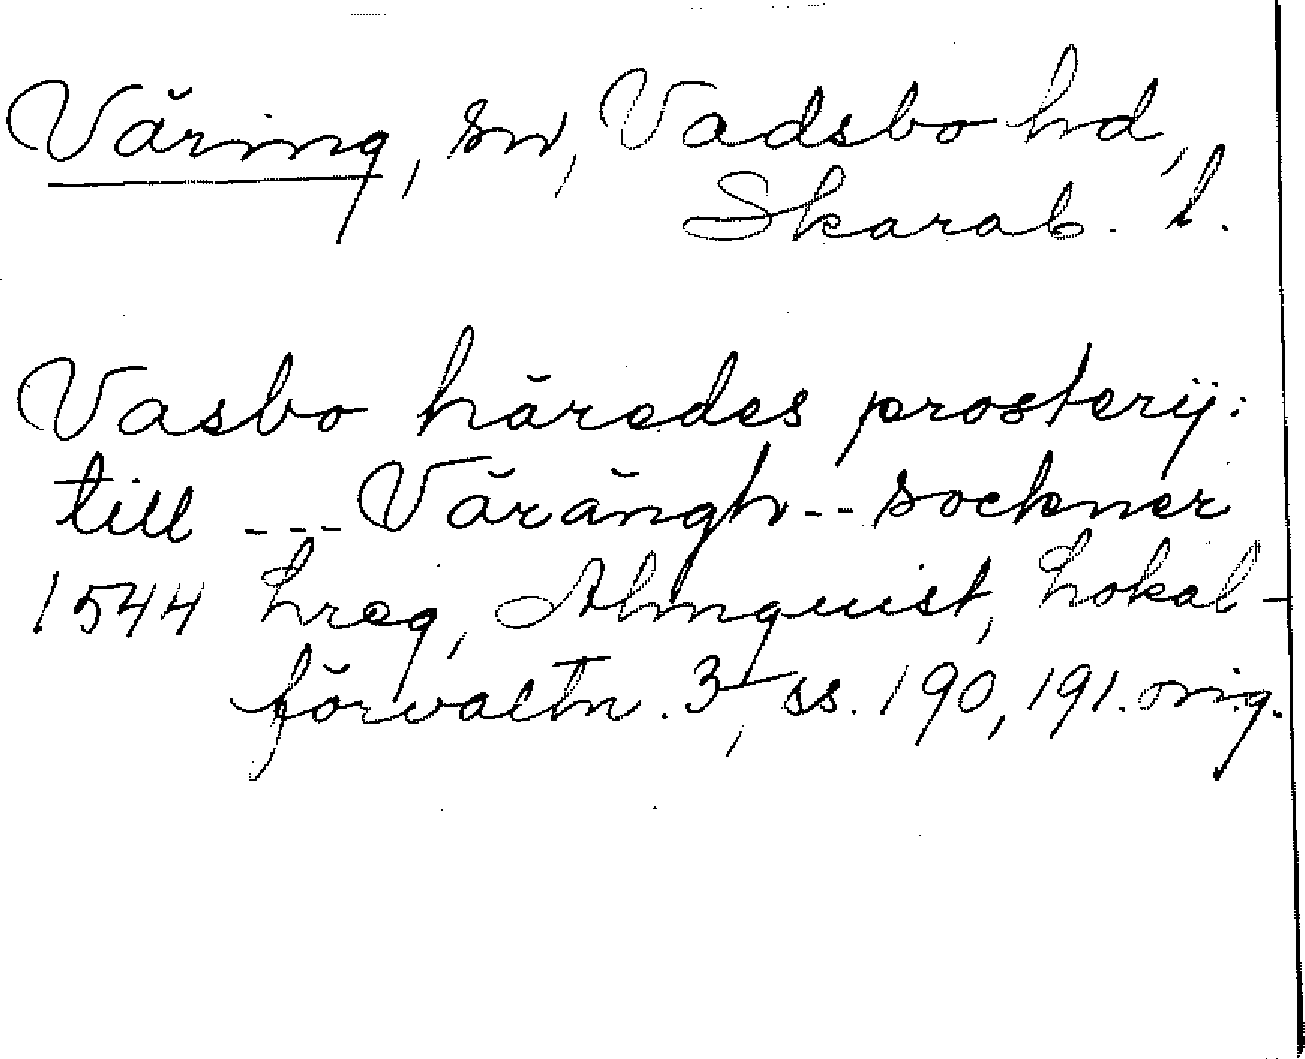 Väring, sn, Vadsbo hd,
Skarab. l.
Vasbo häredes prosterij:
till --- Värängh -- sockner
1544 Lreg, Almquist, Lokal-
förvaltn. 3, ss. 190, 191. orig.